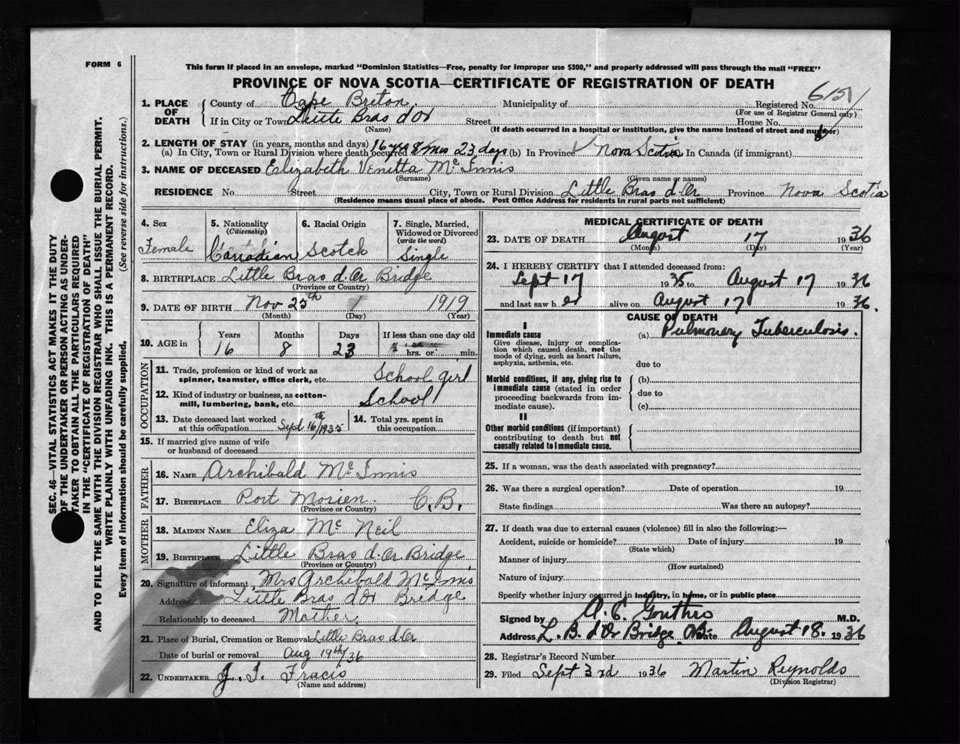 FORM 6
This form if placed in an envelope, marked "Dominion Statistics—Free, penalty for improper use $300," and properly addressed will pass through the mail "FREE"
PROVINCE OF NOVA SCOTIA—CERTIFICATE OF REGISTRATION OF DEATH
SEC. 46—VITAL STATISTICS ACT MAKES IT THE DUTY
OF THE UNDERTAKER OR PERSON ACTING AS UNDER-
TAKER TO OBTAIN ALL THE PARTICULARS REQUIRED
IN THE "CERTIFICATE OF REGISTRATION OF DEATH"
AND TO FILE THE SAME WITH THE DIVISION REGISTRAR WHO SHALL ISSUE THE BURIAL PERMIT.
WRITE PLAINLY WITH UNFADING INK. THIS IS A PERMANENT RECORD.
Every item of information should be carefully supplied. (See reverse side for instructions.)
1. PLACE OF DEATH County of Cape Breton Municipality of Registered No. 6151
(For use of Registrar General only)
If in City or Town Little Bras d'Or Street House No.
(Name) (If death occurred in a hospital or institution, give the name instead of street and number)
2. LENGTH OF STAY (in years, months and days)
(a) In City, Town or Rural Division where death occurred 16 yrs 8 mos 23 days (b) In Province Nova Scotia In Canada (if immigrant)
3. NAME OF DECEASED Elizabeth Venitta McInnis
(Surname) (Given name or names)
RESIDENCE No Street City, Town or Rural Division Little Bras d'Or Province Nova Scotia
(Residence means usual place of abode. Post Office Address for residents in rural parts not sufficient)
4. Sex 5. Nationality (Citizenship) 6. Racial Origin 7. Single, Married, Widowed or Divorced (write the word)
Female Canadian Scotch Single
8. BIRTHPLACE Little Bras d'Or Bridge
(Province or Country)
9. DATE OF BIRTH Nov 25th 1919
(Month) (Day) (Year)
10. AGE in Years Months Days If less than one day old
16 8 23 hrs. or min.
OCCUPATION
11. Trade, profession or kind of work as spinner, teamster, office clerk, etc. School girl
12. Kind of industry or business, as cotton-mill, lumbering, bank, etc. School
13. Date deceased last worked at this occupation Sept 16th/1935 14. Total yrs. spent in this occupation
15. If married give name of wife or husband of deceased
FATHER
16. NAME Archibald McInnis
17. BIRTHPLACE Port Morien C.B.
(Province or Country)
MOTHER
18. MAIDEN NAME Eliza McNeil
19. BIRTHPLACE Little Bras d'Or Bridge
(Province or Country)
20. Signature of informant Mrs Archibald McInnis
Address Little Bras d'Or Bridge
Relationship to deceased Mother
21. Place of Burial, Cremation or Removal Little Bras d'Or
Date of burial or removal Aug 19th/36
22. UNDERTAKER J. T.
(Name and address)
MEDICAL CERTIFICATE OF DEATH
23. DATE OF DEATH August 17 1936
(Month) (Day) (Year)
24. I HEREBY CERTIFY that I attended deceased from:
Sept 17 1935 to August 17 1936
and last saw her alive on August 17 1936.
CAUSE OF DEATH
I
Immediate cause (a) Pulmonary Tuberculosis.
Give disease, injury or complication which caused death, not the mode of dying, such as heart failure, asphyxia, asthenia, etc.
due to
Morbid conditions, if any, giving rise to immediate cause (stated in order proceeding backwards from immediate cause).
(b)
due to
(c)
II
Other morbid conditions (if important) contributing to death but not causally related to immediate cause.
25. If a woman, was the death associated with pregnancy?
26. Was there a surgical operation? Date of operation 19
State findings Was there an autopsy?
27. If death was due to external causes (violence) fill in also the following:—
Accident, suicide or homicide? Date of injury 19
(State which)
Manner of injury
(How sustained)
Nature of injury
Specify whether injury occurred in industry, in home, or in public place
Signed by M.D.
Address L. B. d'Or Bridge Date August 18. 1936
28. Registrar's Record Number
29. Filed Sept 3rd 1936 Martin Reynolds
(Division Registrar)